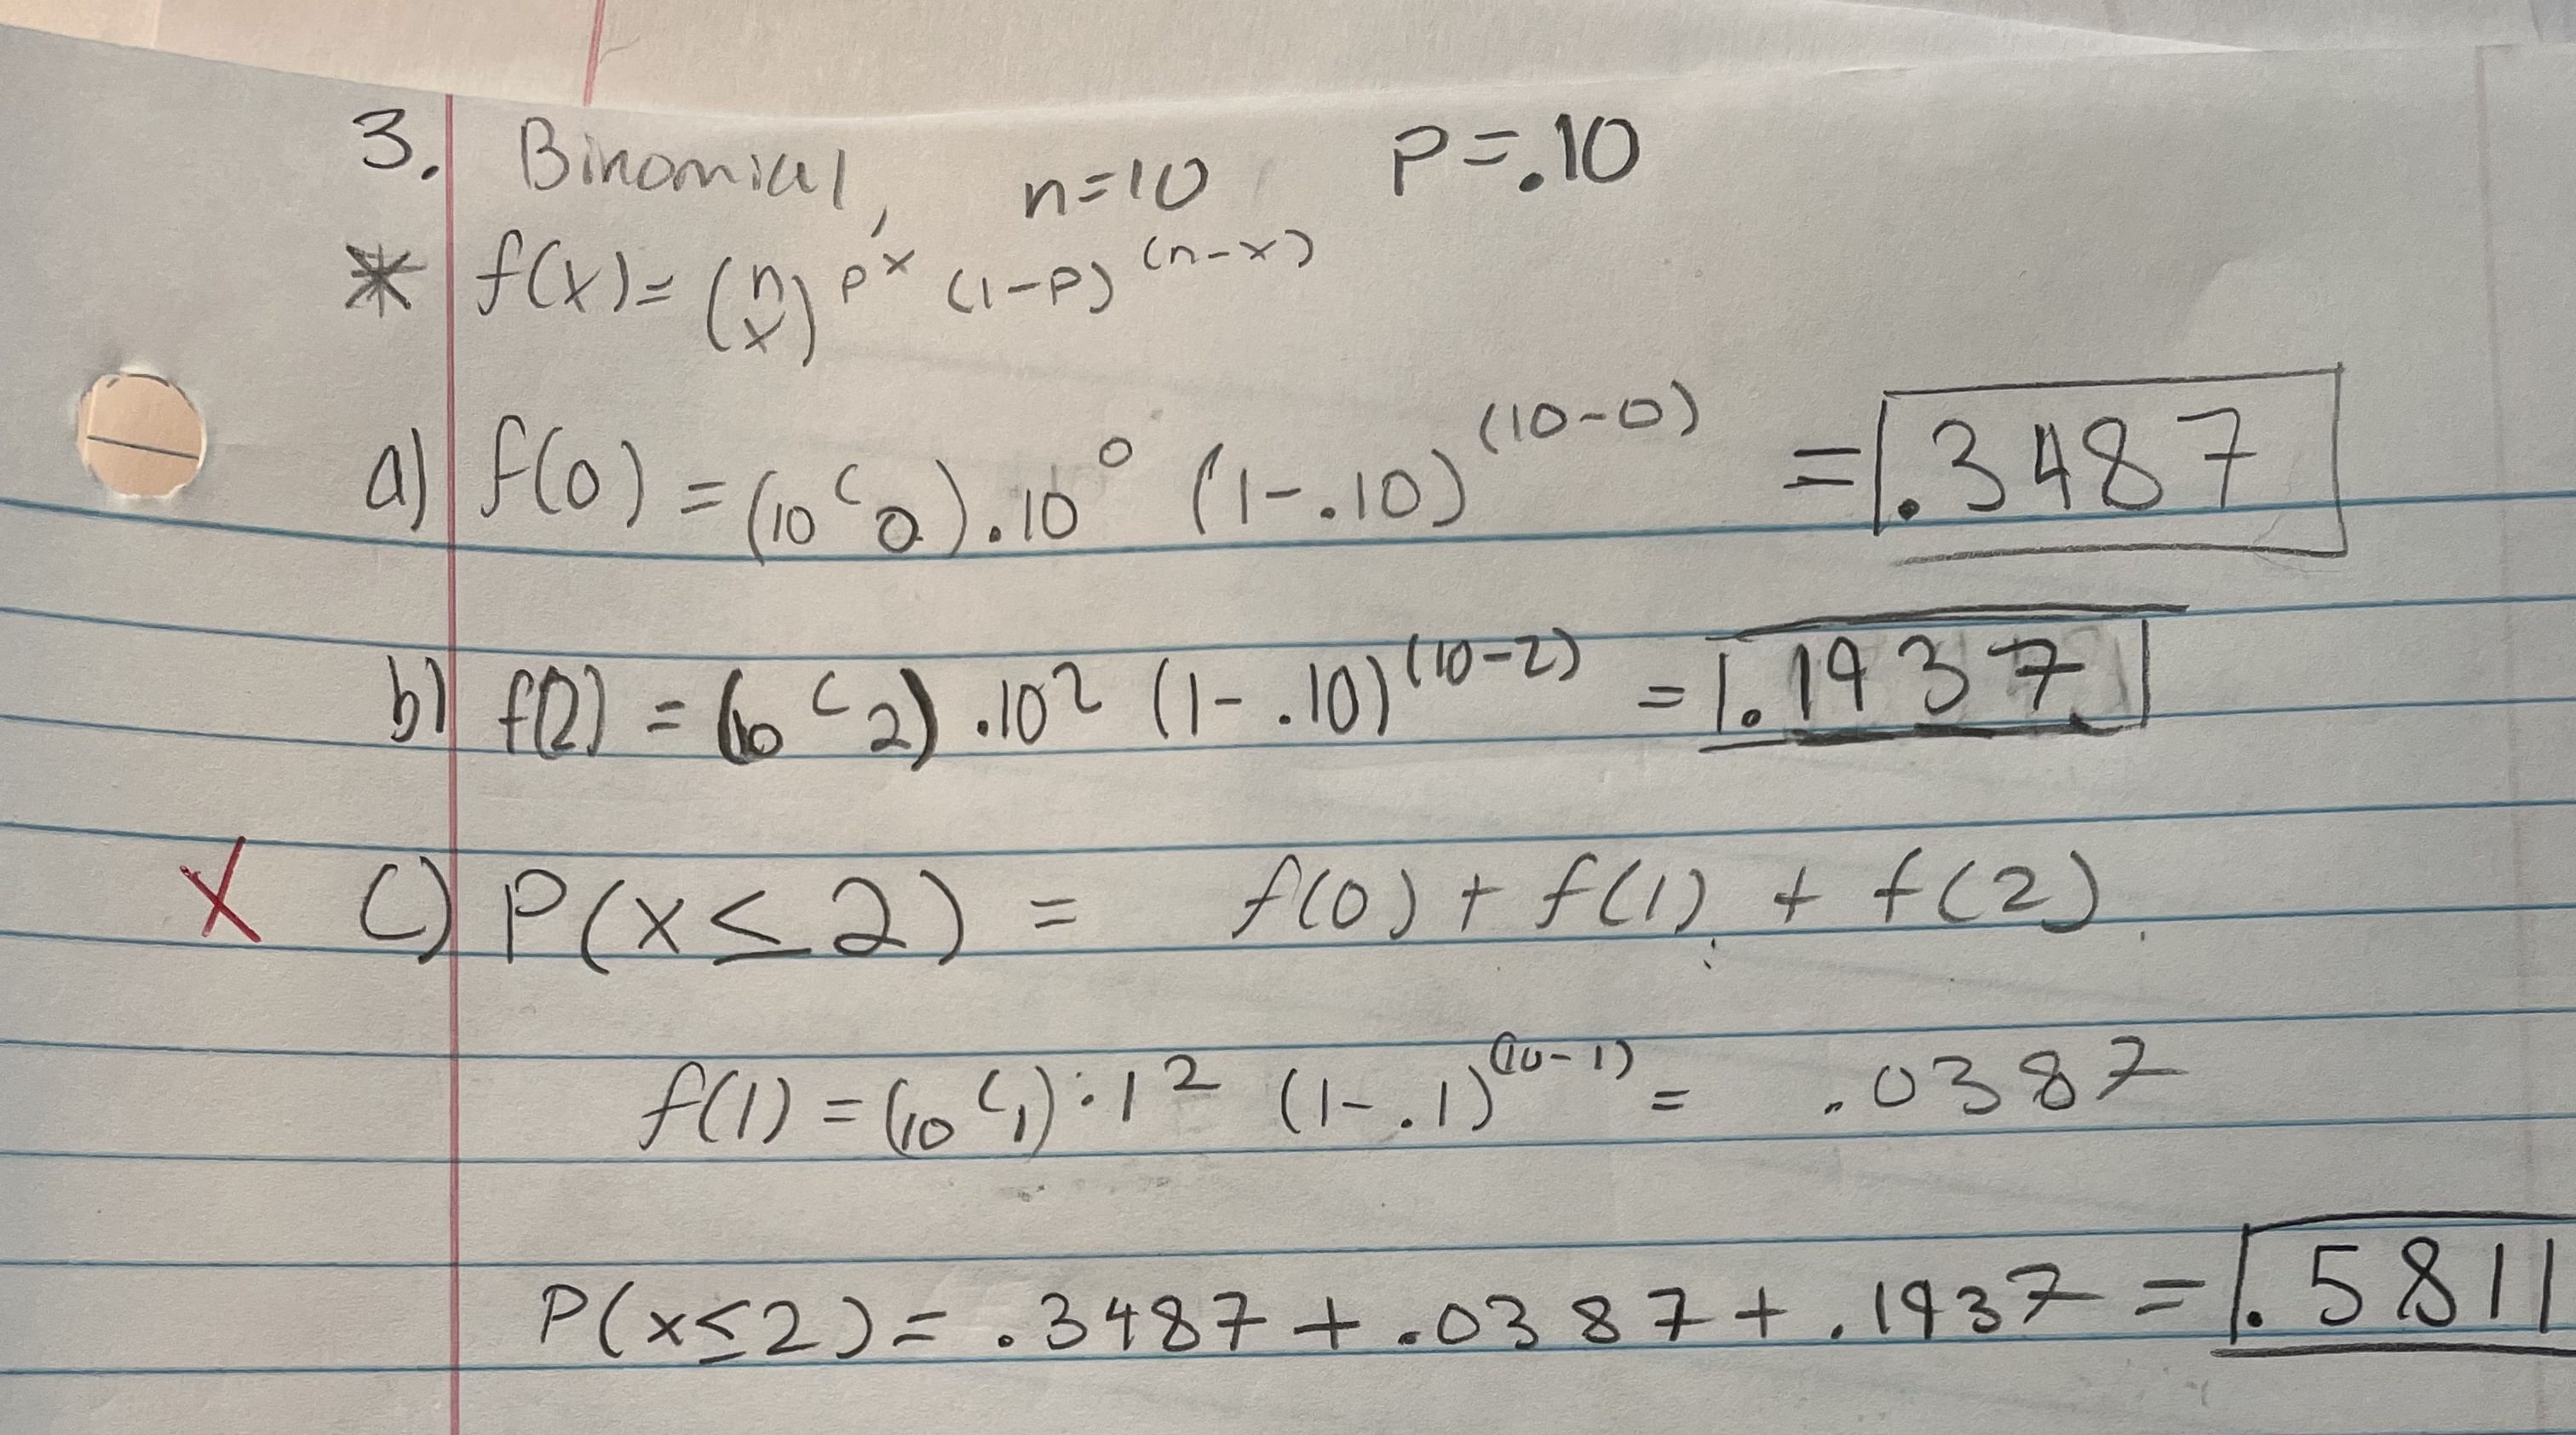 3. Binomial, n=10 P=.10
* f(x)= (n x) p^x (1-p)^(n-x)
a) f(0) = (10 C 0) .10^0 (1-.10)^(10-0) = .3487
b) f(2) = (10 C 2) .10^2 (1-.10)^(10-2) = .1937
X C) P(x≤2) = f(0) + f(1) + f(2)
f(1) = (10 C 1) .1^2 (1-.1)^(10-1) = .0387
P(x≤2) = .3487 + .0387 + .1937 = .5811